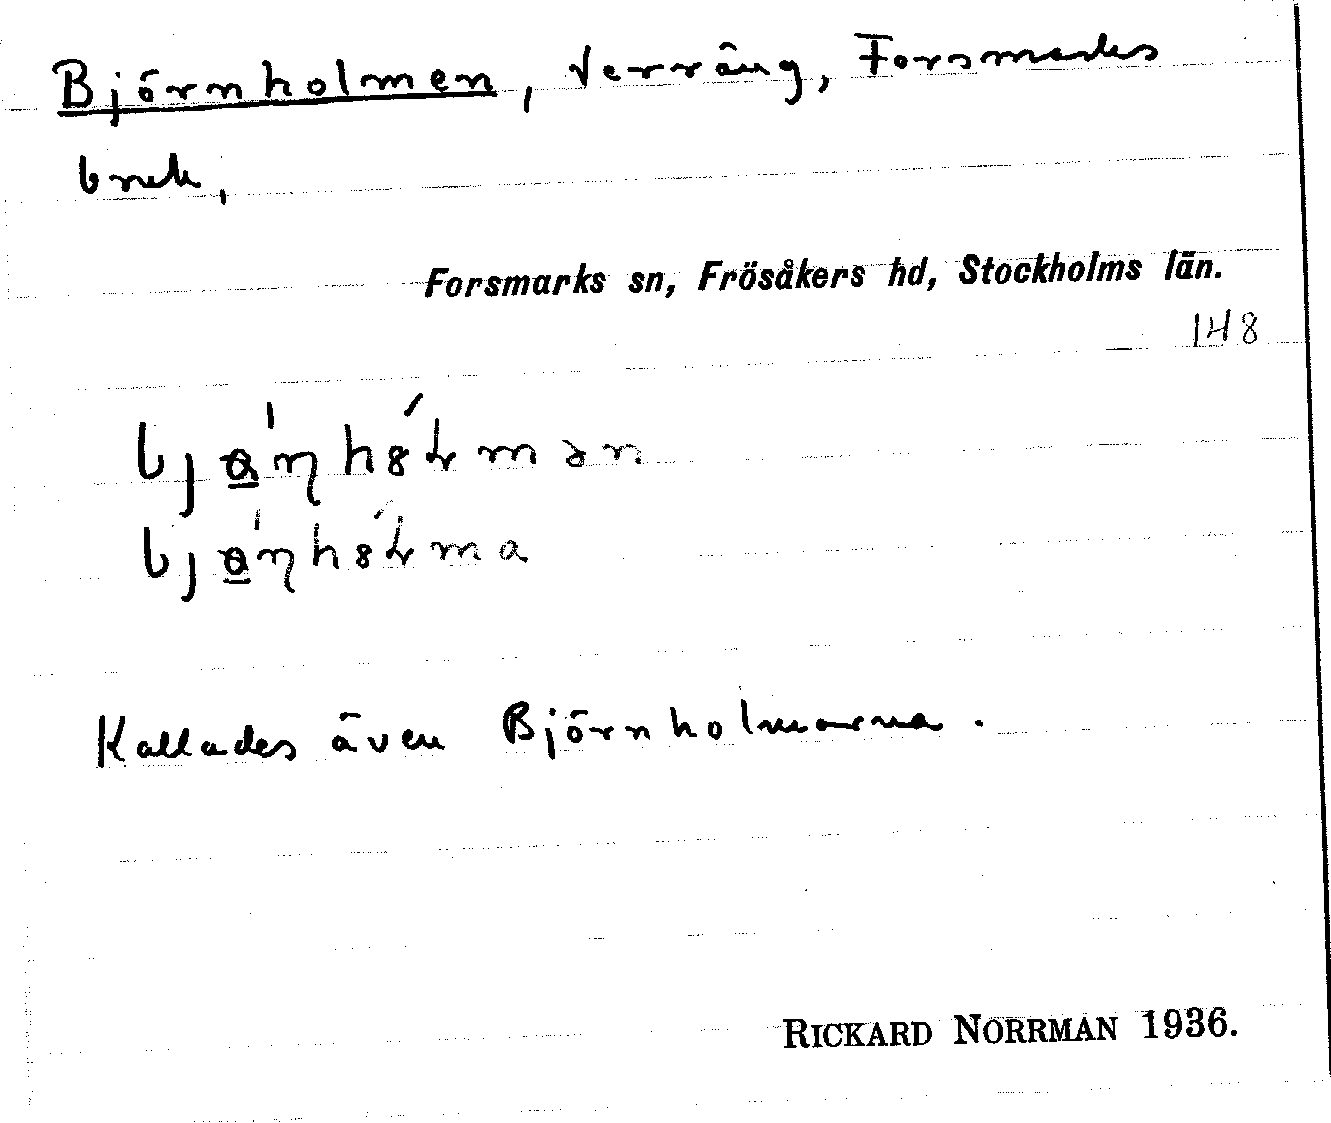 Björnholmen, Verräng, Forsmarks
bruk,
Forsmarks sn, Frösåkers hd, Stockholms län.
148
Kallades även Björnholmarna.
RICKARD NORRMAN 1936.